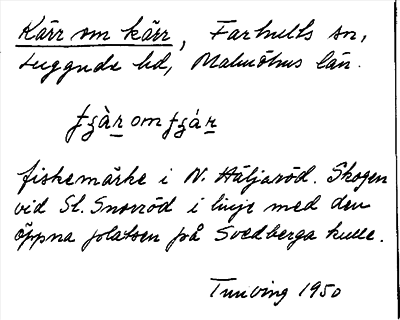 Kärr om kärr, Farhults sn,
Luggude hd, Malmöhus län.
fiskemärke i N. Häljaröd. Skogen
vid St. Snorröd i linje med den
öppna platsen på Svedberga kulle.
Tunving 1950